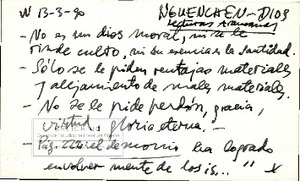 W 13-3-90 NGUENCHEN-DIOS
Lecturas Araucanas
- No es un dios moral, ni se le
rinde culto, ni su esencia es la Santidad.
- Sólo se le piden ventajas materiales
y alejamiento de males materiales.
- No se le pide perdón, gracia,
virtud, gloria eterna. -
- Pág. 222 el demonio ha logrado
envolver mente de los is... " x